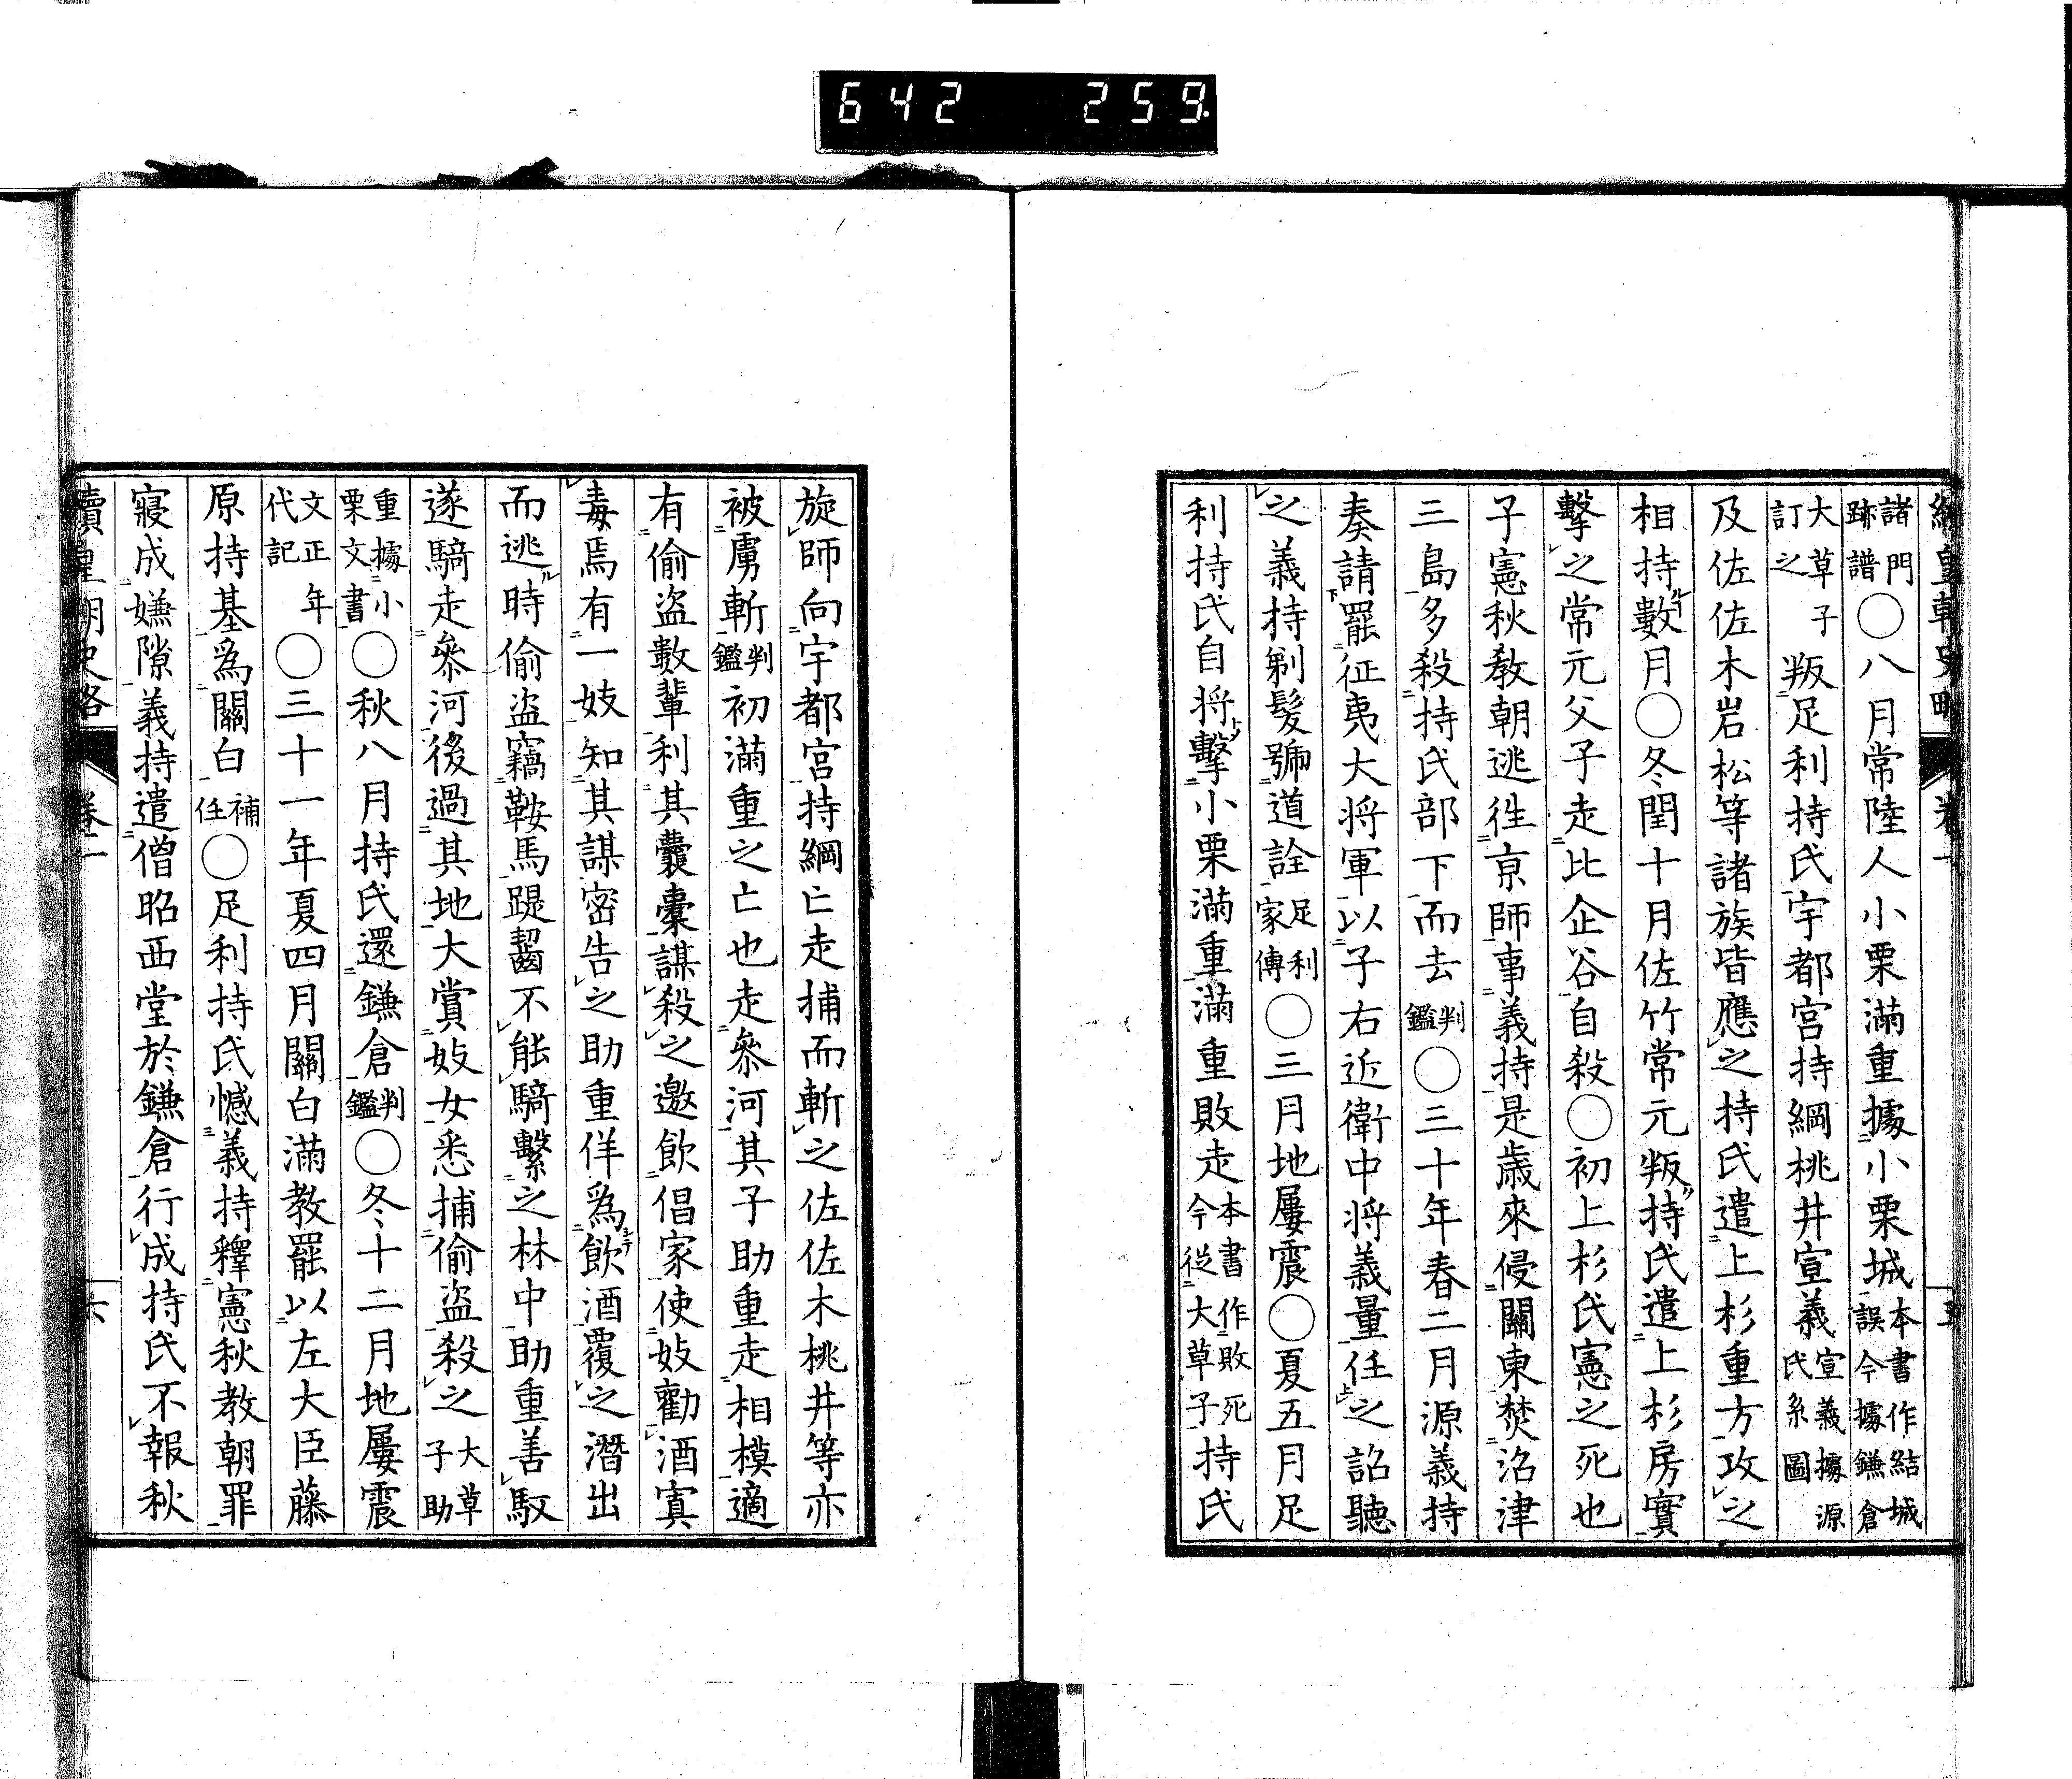 642 259
諸門跡譜〇八月常陸人小栗滿重據小栗城本書作結城誤今據鎌倉
大草子訂之叛足利持氏宇都宮持綱桃井宣義宣義據源氏系圖
及佐佐木岩松等諸族皆應之持氏遣上杉重方攻之
相持數月〇冬閏十月佐竹常元叛持氏遣上杉房實
擊之常元父子走比企谷自殺〇初上杉氏憲之死也
子憲秋教朝逃往京師事義持是歲來侵關東焚沼津
三島多殺持氏部下而去判鑑〇三十年春二月源義持
奏請罷征夷大將軍以子右近衛中將義量任之詔聽
之義持剃髮號道詮足利家傳〇三月地屢震〇夏五月足
利持氏自將擊小栗滿重滿重敗走本書作敗死今從大草子持氏
旋師向宇都宮持綱亡走捕而斬之佐佐木桃井等亦
被虜斬判鑑初滿重之亡也走參河其子助重走相模適
有偷盜數輩利其囊橐謀殺之邀飲倡家使妓勸酒寘
毒焉有一妓知其謀密告之助重佯為飲酒覆之潛出
而逃時偷盜竊鞍馬踶齧不能騎繫之林中助重善馭
遂騎走參河後過其地大賞妓女悉捕偷盜殺之大草子助
重據小栗文書〇秋八月持氏還鎌倉判鑑〇冬十二月地屢震
文正年代記〇三十一年夏四月關白滿教罷以左大臣藤
原持基爲關白補任〇足利持氏憾義持釋憲秋教朝罪
寢成嫌隙義持遣僧昭西堂於鎌倉行成持氏不報秋
續皇朝史略 卷一 六